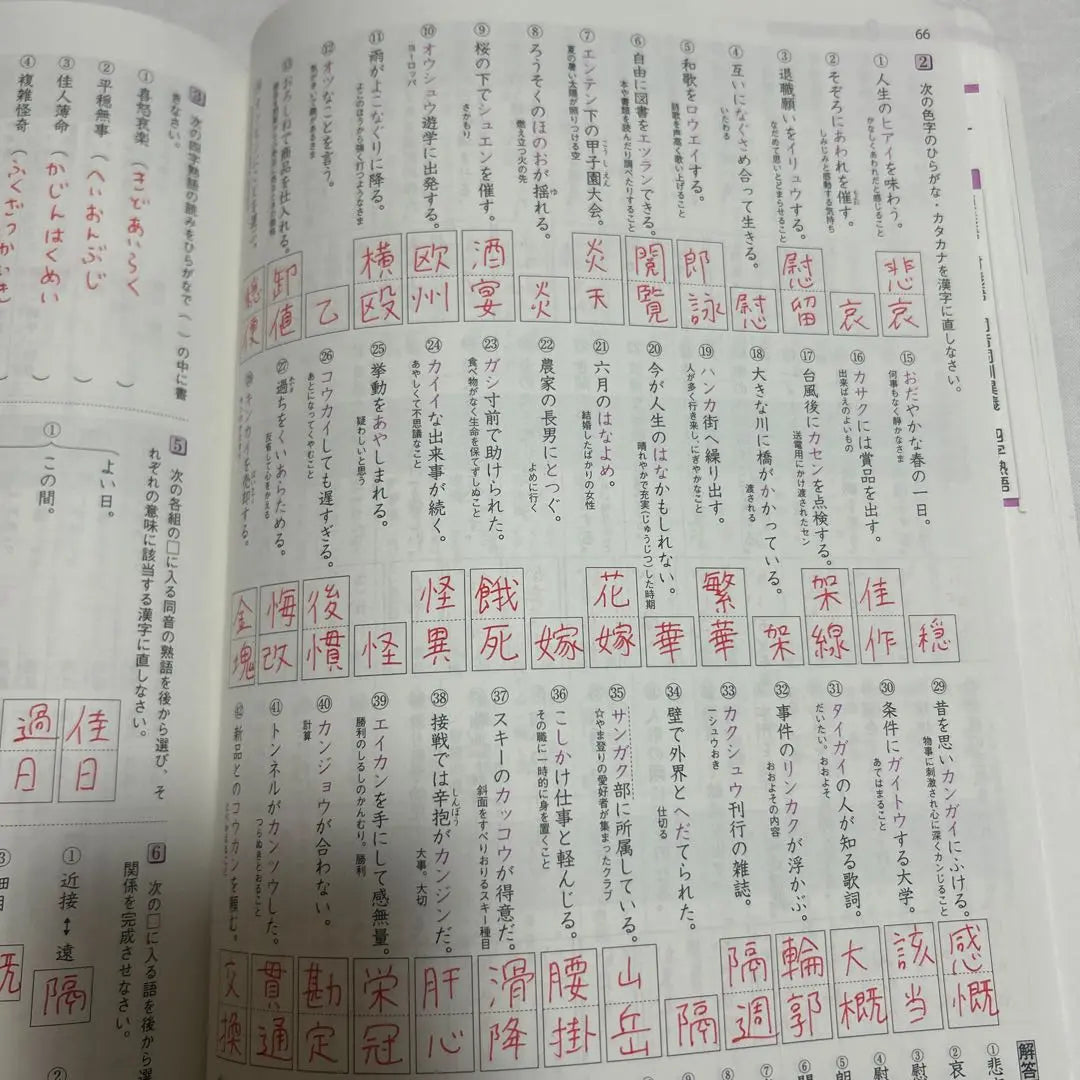 66
2 次の色字のひらがな・カタカナを漢字に直しなさい。
① 人生のヒアイを味わう。
かなしくあわれだと感じること
悲哀
② そぞろにあわれを催す。
しみじみと感動する気持ち
哀
③ 退職願いをイリュウする。
なだめて思いとどまらせること
慰留
④ 互いになぐさめ合って生きる。
いたわる
慰
⑤ 和歌をロウエイする。
詩歌を声高く歌い上げること
郎詠
⑥ 自由に図書をエツランできる。
本や書類を読んだり調べたりすること
閲覧
⑦ エンテン下の甲子園大会。
こうしえん
夏の暑い太陽が照りつける空
炎天
⑧ ろうそくのほのおが揺れる。
燃え立つ火の先
炎
⑨ 桜の下でシュエンを催す。
さかもり
酒宴
⑩ オウシュウ遊学に出発する。
ヨーロッパ
欧州
⑪ 雨がよこなぐりに降る。
よこのほうから強く打つようなさま
横殴
⑫ オツなことを言う。
乙
⑬ おろしねで商品を仕入れる。
卸値
⑮ おだやかな春の一日。
何事もなく静かなさま
穏
⑯ カサクには賞品を出す。
出来ばえのよいもの
佳作
⑰ 台風後にカセンを点検する。
送電用にかけ渡されたセン
架線
⑱ 大きな川に橋がかかっている。
渡される
架
⑲ ハンカ街へ繰り出す。
人が多く行き来し、にぎやかなこと
繁華
⑳ 今が人生のはなかもしれない。
晴れやかで充実(じゅうじつ)した時期
華
㉑ 六月のはなよめ。
結婚したばかりの女性
花嫁
㉒ 農家の長男にとつぐ。
よめに行く
嫁
㉓ ガシ寸前で助けられた。
食べ物がなく生命を保てずしぬこと
餓死
㉔ カイイな出来事が続く。
あやしくて不思議なこと
怪異
㉕ 挙動をあやしまれる。
疑わしいと思う
怪
㉖ コウカイしても遅すぎる。
あとになってくやむこと
後慣
㉗ 過ちをくいあらためる。
反省して心をかえる
悔改
㉘ キンカイを売却する。
金塊
㉙ 昔を思いカンガイにふける。
物事に刺激され心に深くカンじること
感慨
㉚ 条件にガイトウする大学。
あてはまること
該当
㉛ タイガイの人が知る歌詞。
だいたい。おおよそ
大概
㉜ 事件のリンカクが浮かぶ。
おおよその内容
輪郭
㉝ カクシュウ刊行の雑誌。
一シュウおき
隔週
㉞ 壁で外界とへだてられた。
仕切る
隔
㉟ サンガク部に所属している。
☆やま登りの愛好者が集まったクラブ
山岳
㊱ こしかけ仕事と軽んじる。
その職に一時的に身を置くこと
腰掛
㊲ スキーのカッコウが得意だ。
斜面をすべりおりるスキー種目
滑降
㊳ 接戦では辛抱がカンジンだ。
しんぼう
大事。大切
肝心
㊴ エイカンを手にして感無量。
勝利のしるしのかんむり。勝利
栄冠
㊵ カンジョウが合わない。
計算
勘定
㊶ トンネルがカンツウした。
つらぬきとおること
貫通
㊷ 新品とのコウカンを願む。
交換
解答
3 次の四字熟語の読みをひらがなで( )の中に書きなさい。
① 喜怒哀楽(きどあいらく)
② 平穏無事(へいおんぶじ)
③ 佳人薄命(かじんはくめい)
④ 複雑怪奇(ふくざつかいき
5 次の各組の□に入る同音の熟語を後から選び、それぞれの意味に該当する漢字に直しなさい。
①
よい日。
佳日
この間。
過日
6 次の□に入る語を後から選
関係を完成させなさい。
① 近接↔遠隔